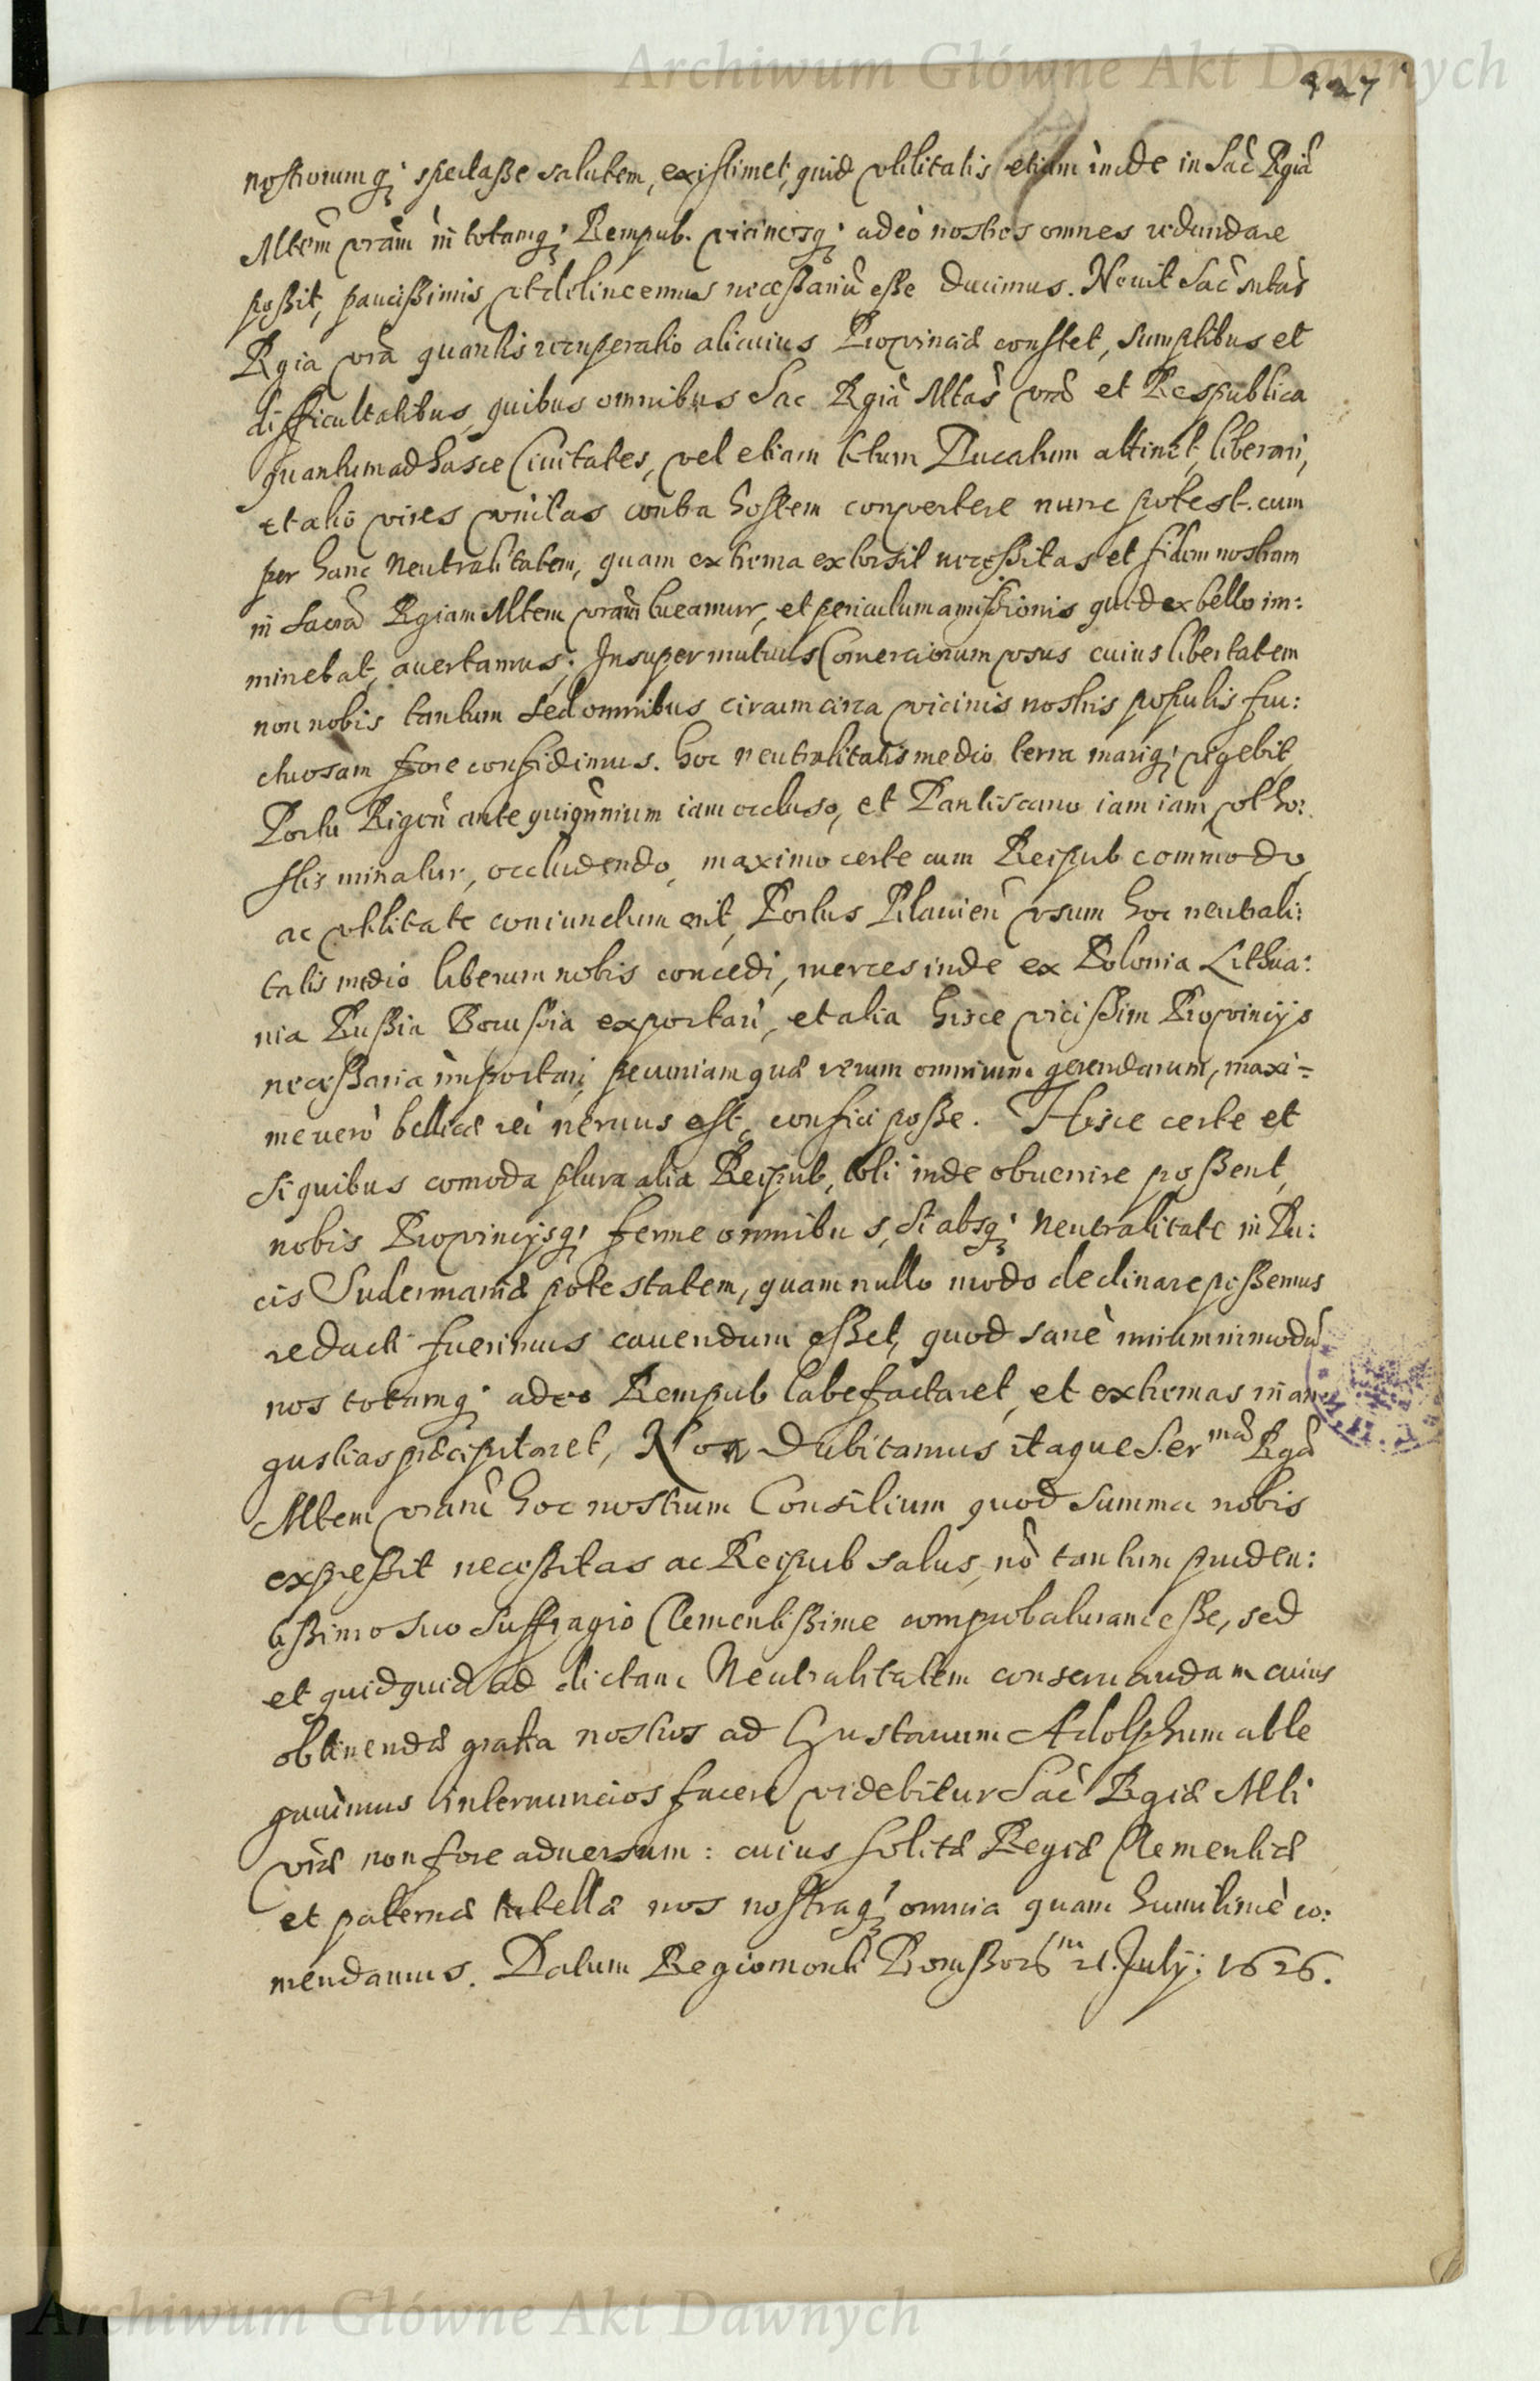 Archiwum Główne Akt Dawnych
nostrorumq; spectasse salutem, existimet, quid vtilitatis etiam inde in Sac Rgia
Mtem vram in totamq; Rempub. vicinosq; adeò nostros omnes redundare
possit, paucissimis vt delineemus necessariu esse ducimus. Novit Sac Mtas
Rgia vra quantis recuperatio alicuius Provinciæ constet, sumptibus et
difficultatibus, quibus omnibus Sac Rgia Mtas vra et Respublica
quantum ad hasce Civitates, vel etiam totum Ducatum attinet, liberari,
et alio vires vnitas contra hostem convertere nunc potest. cum
per hanc Neutralitatem, quam extrema extorsit necessitas et fidem nostram
in Sacra Rgiam Mtem vram tueamur, et periculum amissionis quod ex bello im:
minebat, avertamus; Insuper mutuus Comerciorum vsus cuius libertatem
non nobis tantum sed omnibus circumcirca vicinis nostris populis fru:
ctuosam fore confidimus. hoc neutralitatis medio terra mariq; vigebit
Portu Rigen ante quiqunnium iam occluso, et Dantiscano iam iam vt ho:
stis minatur, occludendo, maximo certe cum Reipub commodo,
ac vtilitate coniunctum erit, Portus Pilavien vsum hoc neutrali:
tatis medio liberum nobis concedi, merces inde ex Polonia Lithua:
nia Russia Borussia exportari, et alia hisce vicissim Provincijs
necessaria importari, pecuniam quæ rerum omnium gerendarum, maxi=
me verò bellicæ rei nervus est, confici posse. Hisce certe et
si quibus comoda plura alia Reipub, toti inde obvenire possent,
nobis Provincijsq; ferme omnibus, si absq; Neutralitate in Du:
cis Sudermaniæ potestatem, quam nullo modo declinare possemus
redacti fuerimus cavendum esset, quod sanè
nos totamq; adeo Rempub labefactaret, et extremas in an
gustias præcipitaret, Non dubitamus itaque Ser ma Rga
Mtem vram hoc nostrum Consilium quod summa nobis
expressit necessitas ac Reipub salus, nō tantum pruden:
tissimo suo suffragio Clementissime comprobaturam esse, sed
et quidquid ad dictam Neutralitatem conservandam cuius
obtinendæ gratia nostros ad Gustavum Adolphum able
gavimus internuncios facere videbitur Sac Rgiæ Mti
vræ non fore adversum: cuius solitæ Regiæ Clementiæ
et paternæ tutellæ nos nostraq; omnia quam humilimè co:
mendamus. Datum Regiomonti 21. July: 1626.
Archiwum Główne Akt Dawnych